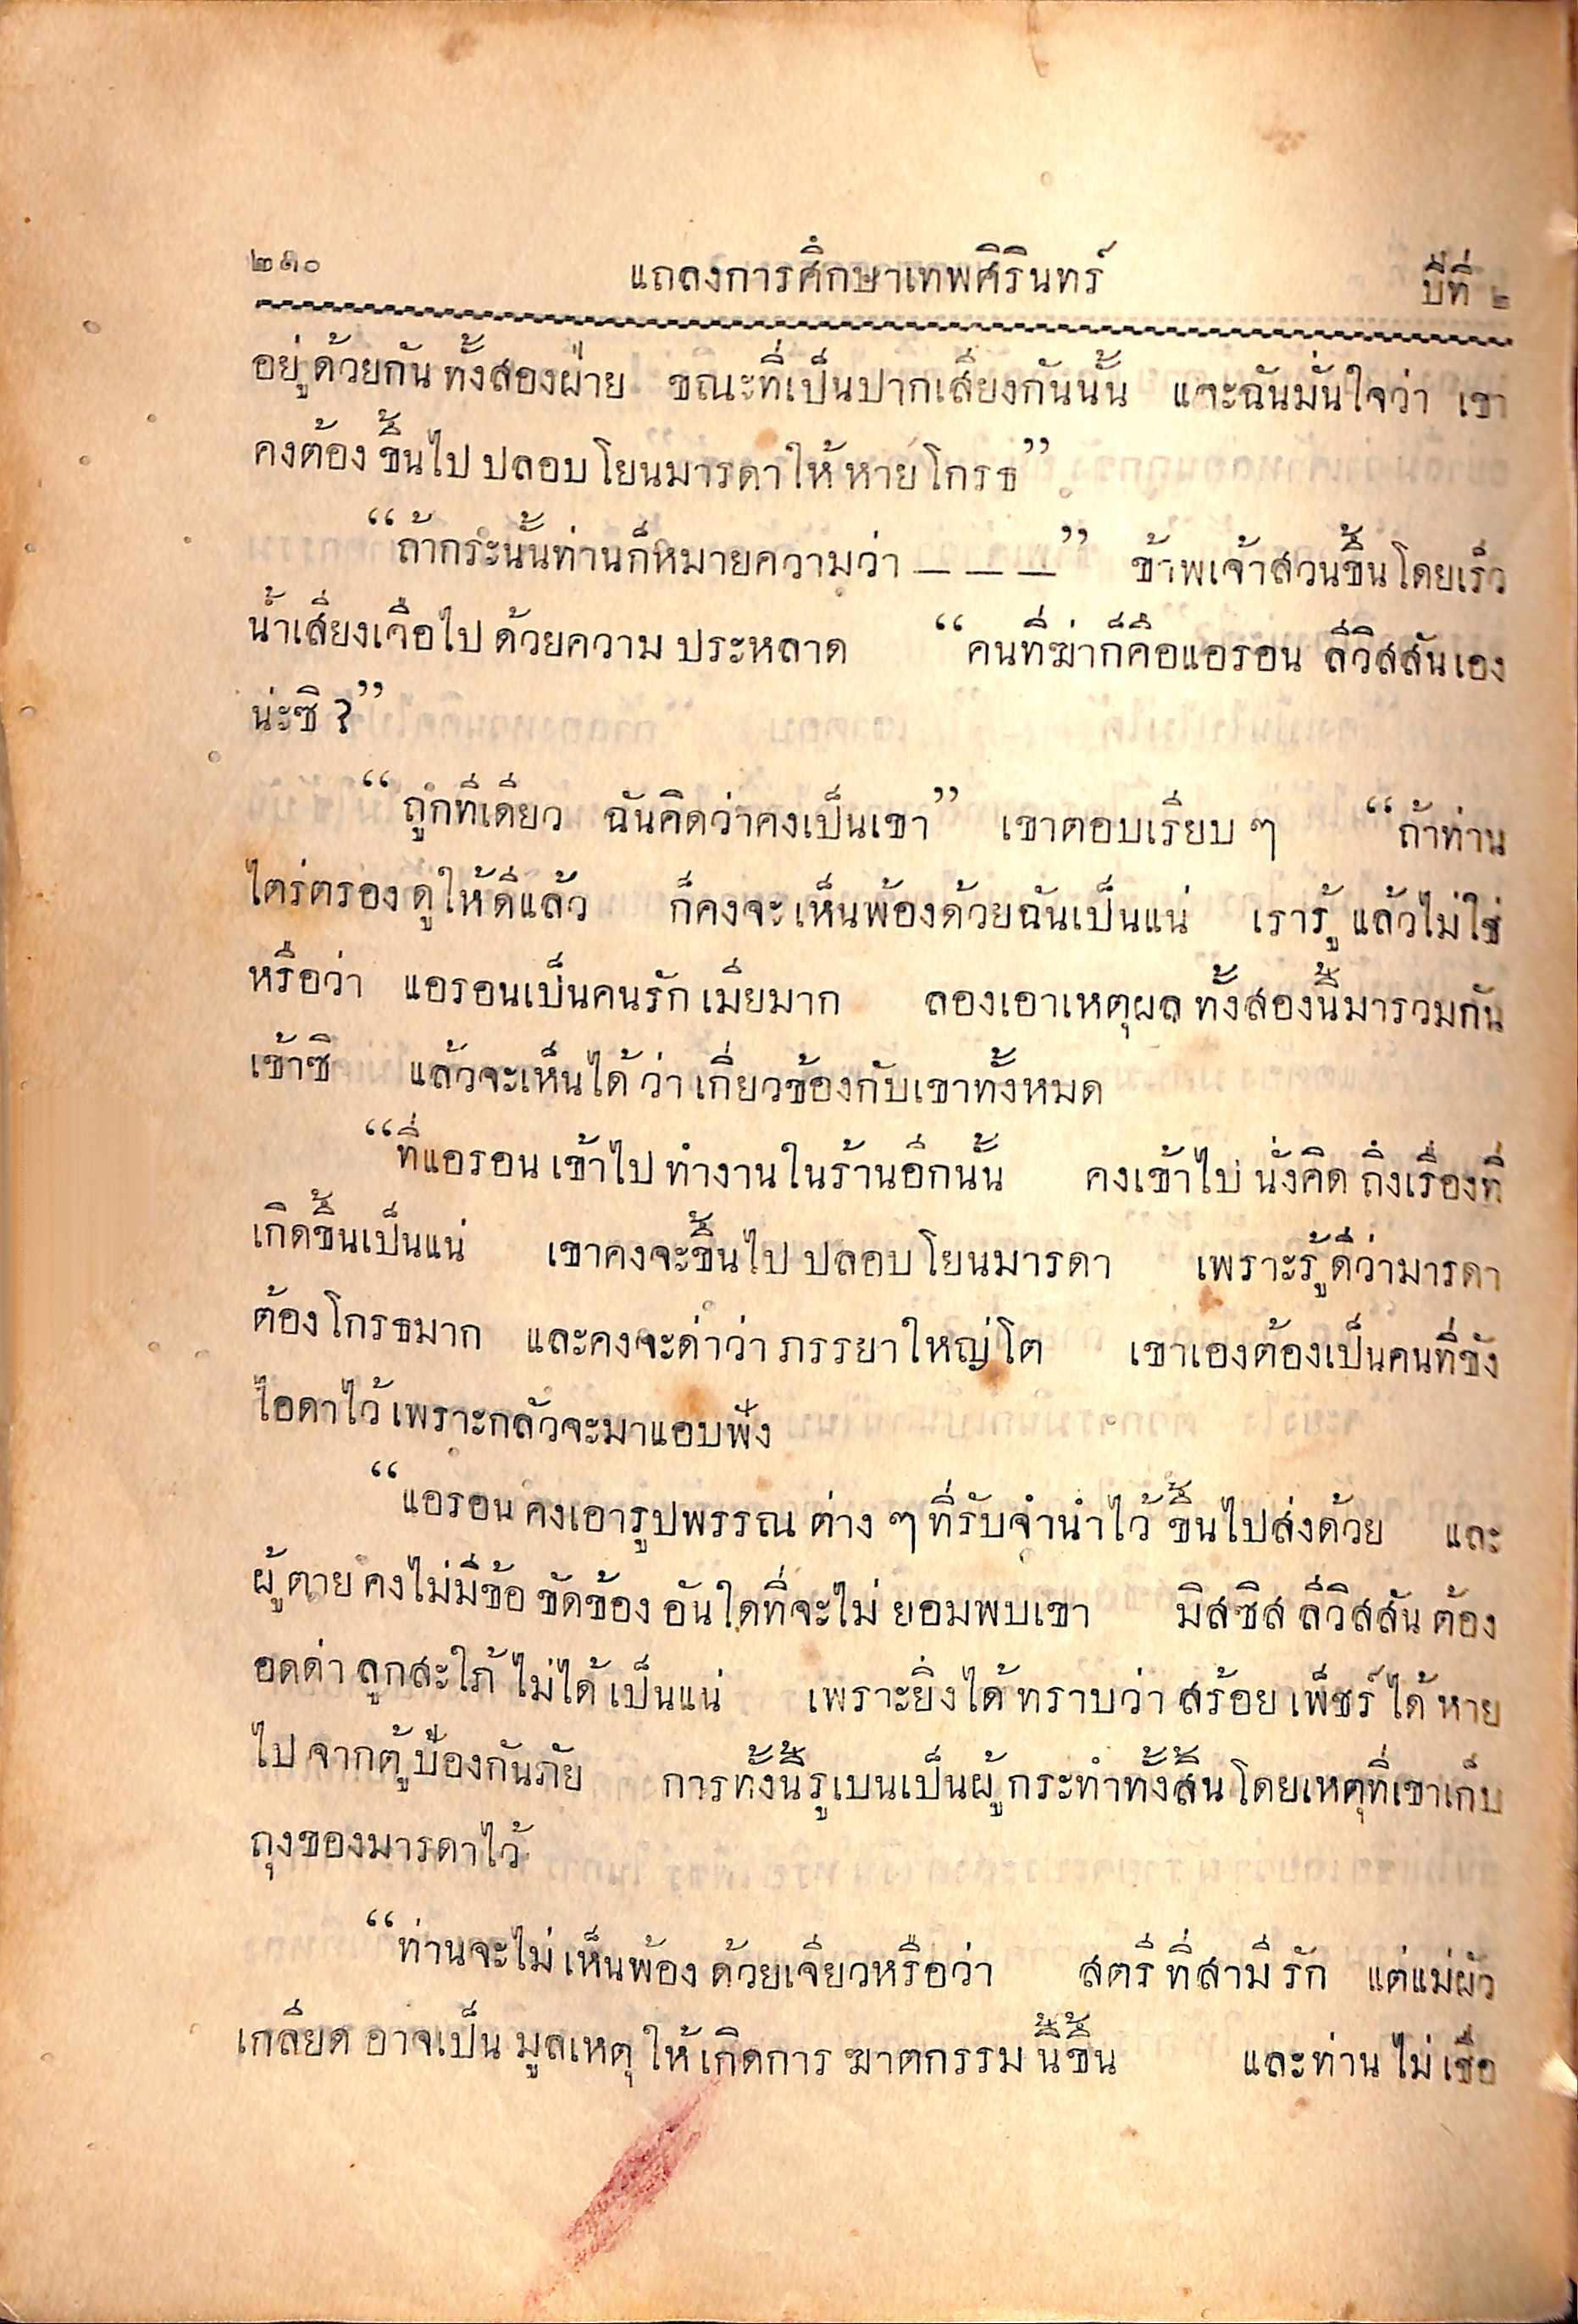 ๒๓๐ แถลงการศึกษาเทพศิรินทร์ ปีที่ ๒
อยู่ด้วยกันทั้งสองฝ่าย ขณะที่เป็นปากเสียงกันนั้น และฉันมั่นใจว่า เขา
คงต้องขึ้นไปปลอบโยนมารดาให้หายโกรธ”
“ถ้ากระนั้นท่านก็หมายความว่า — — —” ข้าพเจ้าสวนขึ้นโดยเร็ว
น้ำเสียงเจือไปด้วยความประหลาด “คนที่ฆ่าก็คือแอรอน ลีวิสสันเอง
น่ะซี ?”
“ถูกทีเดียว ฉันคิดว่าคงเป็นเขา” เขาตอบเรียบ ๆ “ถ้าท่าน
ไตร่ตรองดูให้ดีแล้ว ก็คงจะเห็นพ้องด้วยฉันเป็นแน่ เรารู้แล้วไม่ใช่
หรือว่า แอรอนเป็นคนรักเมียมาก ลองเอาเหตุผลทั้งสองนี้มารวมกัน
เข้าซี แล้วจะเห็นได้ว่าเกี่ยวข้องกับเขาทั้งหมด
“ที่แอรอนเข้าไปทำงานในร้านอีกนั้น คงเข้าไปนั่งคิดถึงเรื่องที่
เกิดขึ้นเป็นแน่ เขาคงจะขึ้นไปปลอบโยนมารดา เพราะรู้ดีว่ามารดา
ต้องโกรธมาก และคงจะด่าว่าภรรยาใหญ่โต เขาเองต้องเป็นคนที่ขัง
ไอดาไว้เพราะกลัวจะมาแอบฟัง
“แอรอนคงเอารูปพรรณต่าง ๆ ที่รับจำนำไว้ขึ้นไปส่งด้วย และ
ผู้ตายคงไม่มีข้อขัดข้องอันใดที่จะไม่ยอมพบเขา มิสซิสลีวิสสันต้อง
อดด่าลูกสะใภ้ไม่ได้เป็นแน่ เพราะยิ่งได้ทราบว่าสร้อยเพ็ชร์ได้หาย
ไปจากตู้ป้องกันภัย การทั้งนี้รูเบนเป็นผู้กระทำทั้งสิ้นโดยเหตุที่เขาเก็บ
ถุงของมารดาไว้
“ท่านจะไม่เห็นพ้องด้วยเจียวหรือว่า สตรีที่สามีรัก แต่แม่ผัว
เกลียดอาจเป็นมูลเหตุให้เกิดการฆาตกรรมนี้ขึ้น และท่านไม่เชื่อ